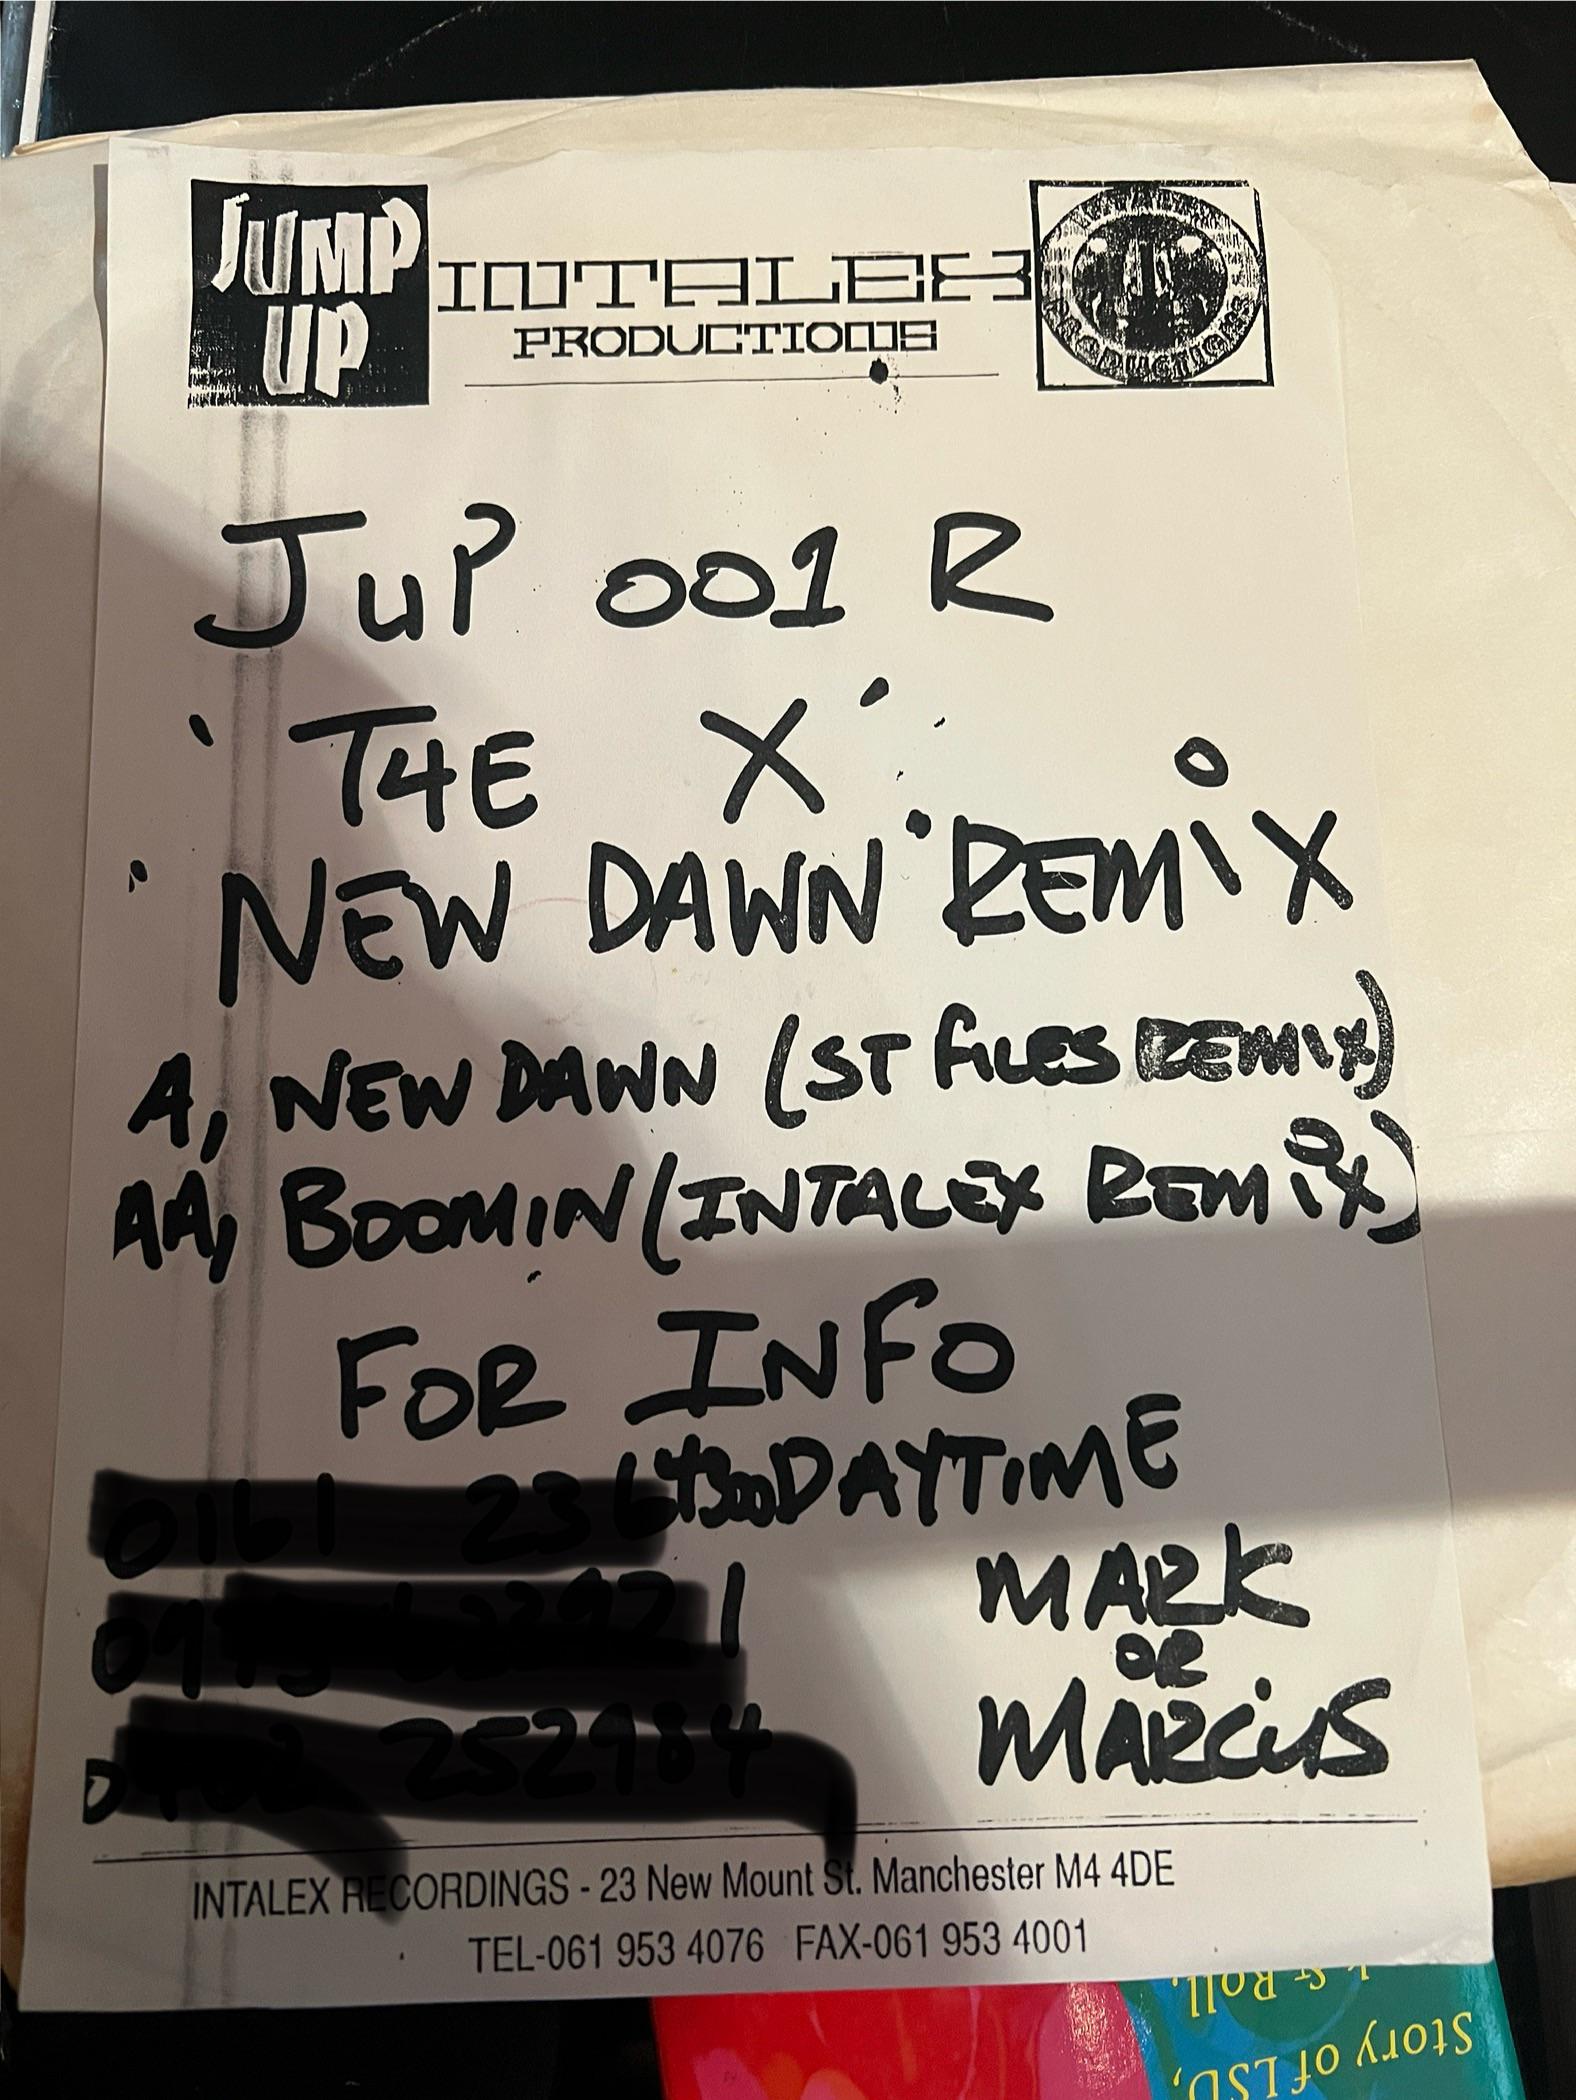 JUMP
UP
INTALEX
PRODUCTIONS
PRODUCTIONS
JuP 001 R
'THE X'
"NEW DAWN" REMiX
A, NEW DAWN (ST FILES REMIX)
AA, BOOMIN (INTALEX REMiX)
FOR INFO
DAYTIME
MARK
OR
MARCUS
INTALEX RECORDINGS - 23 New Mount St. Manchester M4 4DE
TEL-061 953 4076 FAX-061 953 4001
& Roll.
Story of LSD,